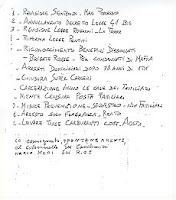 1. REVISIONE SENTENZA - MAXI PROCESSO
2. ANNULLAMENTO DECRETO LEGGE 41 BIS
3. REVISIONE LEGGE ROGNONI - LA TORRE
4. RIFORMA LEGGE PENTITI
5. RICONOSCIMENTO BENEFICI DISSOCIATI - BRIGATE ROSSE - PER CONDANNATI DI MAFIA
6. ARRESTI DOMICILIARI DOPO 70 ANNI DI ETÀ
7. CHIUSURA SUPER CARCERI
8. CARCERAZIONE VICINO LE CASE DEI FAMILIARI
9. NIENTE CENSURA POSTA FAMILIARI
10. MISURE PREVENZIONE - SEQUESTRO - NON FAMILIARI
11. ARRESTO SOLO FRAGRANZA - REATO
12. LEVARE TASSE CARBURANTI COME AOSTA
CONSEGNATO SPONTANEAMENTE
AL COLONNELLO DEI CARABINIERI
MARIO MORI DEI R.O.S